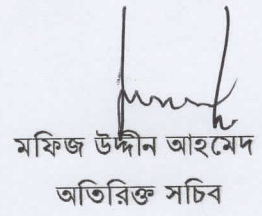 মফিজ উদ্দীন আহমেদ
অতিরিক্ত সচিব